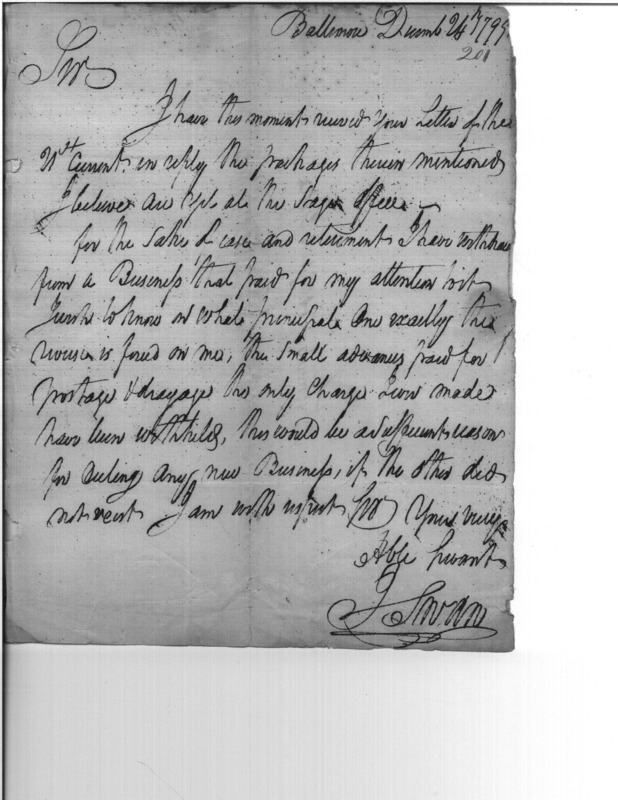 Baltimore Decemb 24th 1799
201
Sir
I have this moment received your Letter of the
21st Current. in reply the packages therein mentioned
I believe are yet at the Stage office
for the Sake of ease and retirement I have withdrawn
from a Business that paid for my attention but
I wish to know on what principal one exactly the
is forced on me, the small advances paid for
postage & drayage the only Charge I ever made
have been withheld, this would be a sufficient reason
for any new Business, if the other did
not exist I am with respect Sir Your very
Hble Servant
J Swan